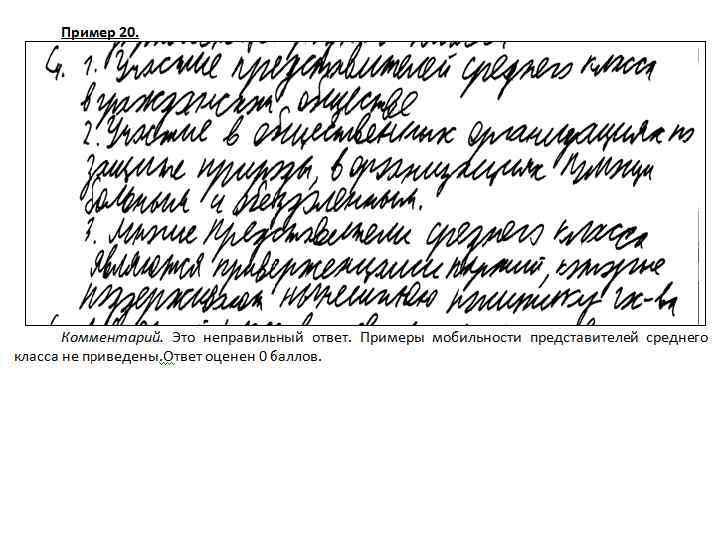 Пример 20.
С4. 1. Участие представителей среднего класса
в гражданском обществе
2. Участие в общественных организациях по
защите природы, в организациях помощи
больным и обездоленным.
3. Многие представители среднего класса
являются приверженцами партий, которые
поддерживают нынешнюю политику гос-ва
Комментарий. Это неправильный ответ. Примеры мобильности представителей среднего
класса не приведены.Ответ оценен 0 баллов.